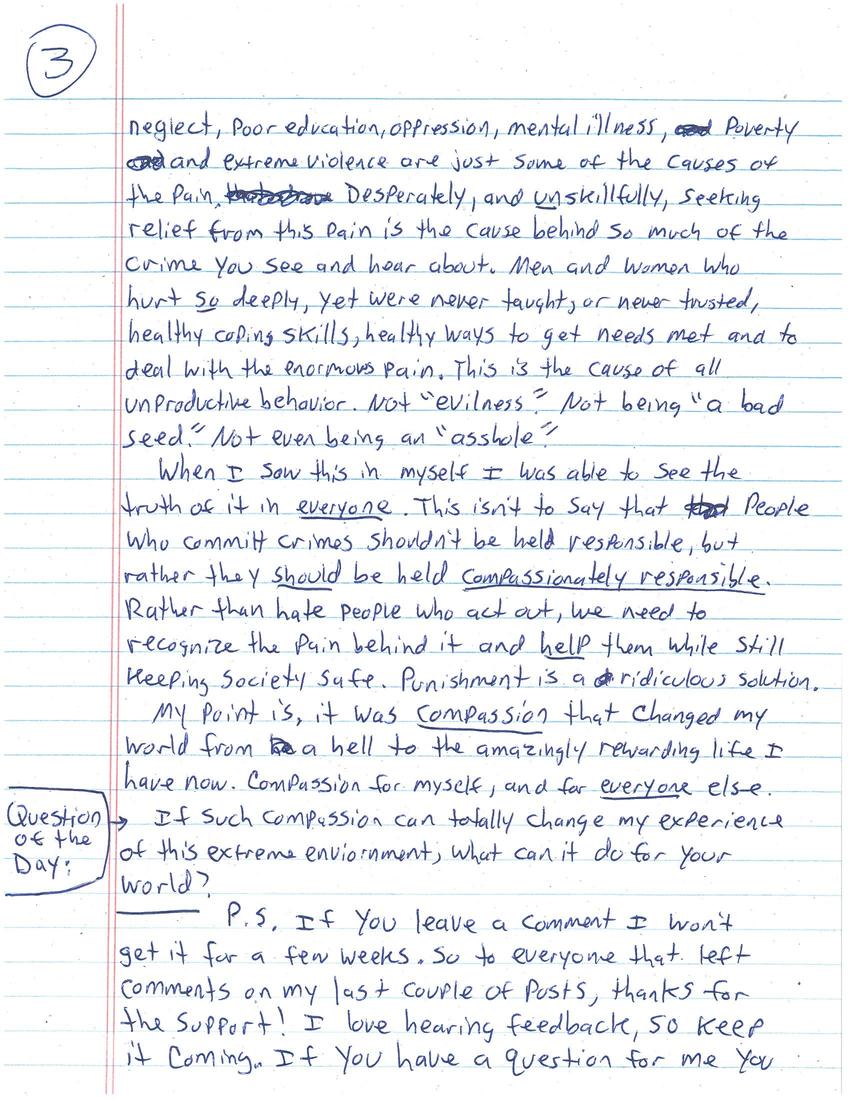 3
neglect, Poor education, oppression, mental illness, and Poverty
and and extreme violence are just some of the causes of
the Pain. Desperately, and unskillfully, seeking
relief from this Pain is the cause behind so much of the
crime you see and hear about. Men and women who
hurt so deeply, yet were never taught, or never trusted,
healthy coping skills, healthy ways to get needs met and to
deal with the enormous pain. This is the cause of all
unproductive behavior. Not "evilness." Not being "a bad
seed." Not even being an "asshole."
When I saw this in myself I was able to see the
truth of it in everyone. This isn't to say that People
who committ crimes shouldn't be held responsible, but
rather they should be held compassionately responsible.
Rather than hate people who act out, we need to
recognize the pain behind it and help them while still
keeping society safe. Punishment is a ridiculous solution.
My point is, it was compassion that changed my
world from a hell to the amazingly rewarding life I
have now. Compassion for myself, and for everyone else.
Question of the Day:
If such compassion can totally change my experience
of this extreme enviornment, what can it do for your
world?
P.S. If you leave a comment I won't
get it for a few weeks. So to everyone that left
comments on my last couple of posts, thanks for
the support! I love hearing feedback, so keep
it coming. If you have a question for me you